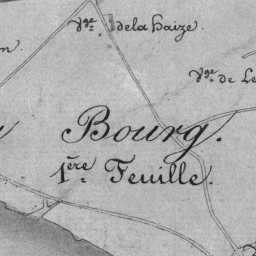 Vge. de la Haize.
Vge. de Le
Bourg.
1ère Feuille.